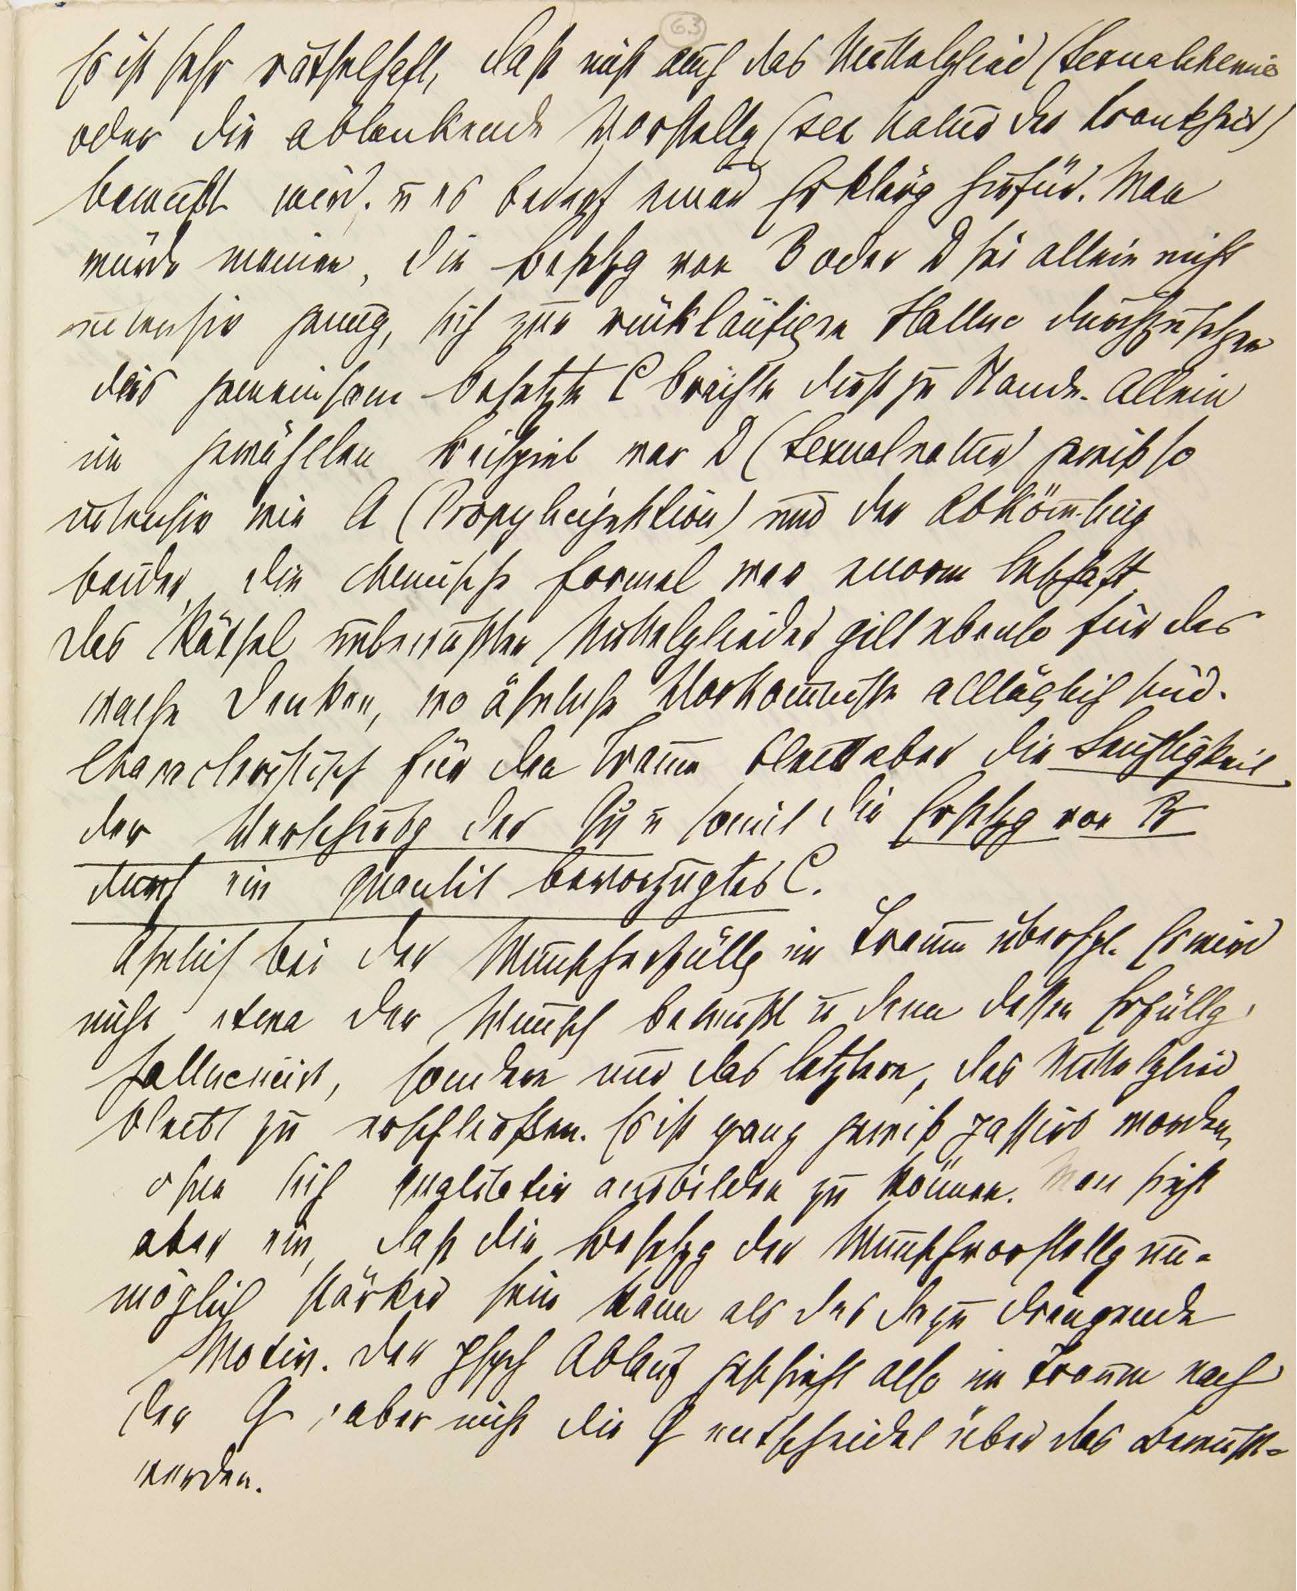 63
Es ist sehr räthselhaft, daß nicht auch das Mittelglied (Sexualchemie
oder die ablenkende Vorstellg (sex Natur der Krankheit)
bewußt wird. u es bedarf einer Erklärg hiefür. Man
würde meinen, die Besetzg von B oder D sei allein nicht
intensiv genug, sich zur rückläufigen Halluc durchzusetzen
das gemeinsam besetzte C brächte dieß zu Stande. Allein
im gewählten Beispiel war D (Sexualnatur) gewiß so
intensiv wie A (Propylinjektion) und der Abköm̄ling
beider, die chemische Formel war enorm lebhaft
Das Rätsel unbewußter Mittelglieder gilt ebenso für das
wache Denken, wo ähnliche Vorkom̄nisse alltäglich sind.
Charakteristisch für den Traum bleibt aber die Leichtigkeit
der Verschiebg der Qη̇ u somit die Ersetzg von B
durch ein quantit bevorzugtes C.
Ähnlich bei der Wunscherfüllg im Traum überhpt. Es wird
nicht etwa der Wunsch bewußt u dann dessen Erfüllg
hallucinirt, sondern nur das letztere, das Mittelglied
bleibt zu erschließen. Es ist ganz gewiß passirt worden,
ohne sich qualitativ ausbilden zu können. Man sieht
aber ein, daß die Besetzg der Wunschvorstellg un-
möglich stärker sein kann als das dazu drängende
Motiv. Der psych Ablauf geschieht also im Traum nach
der Q, aber nicht die Q entscheidet über das Bewußt-
werden.